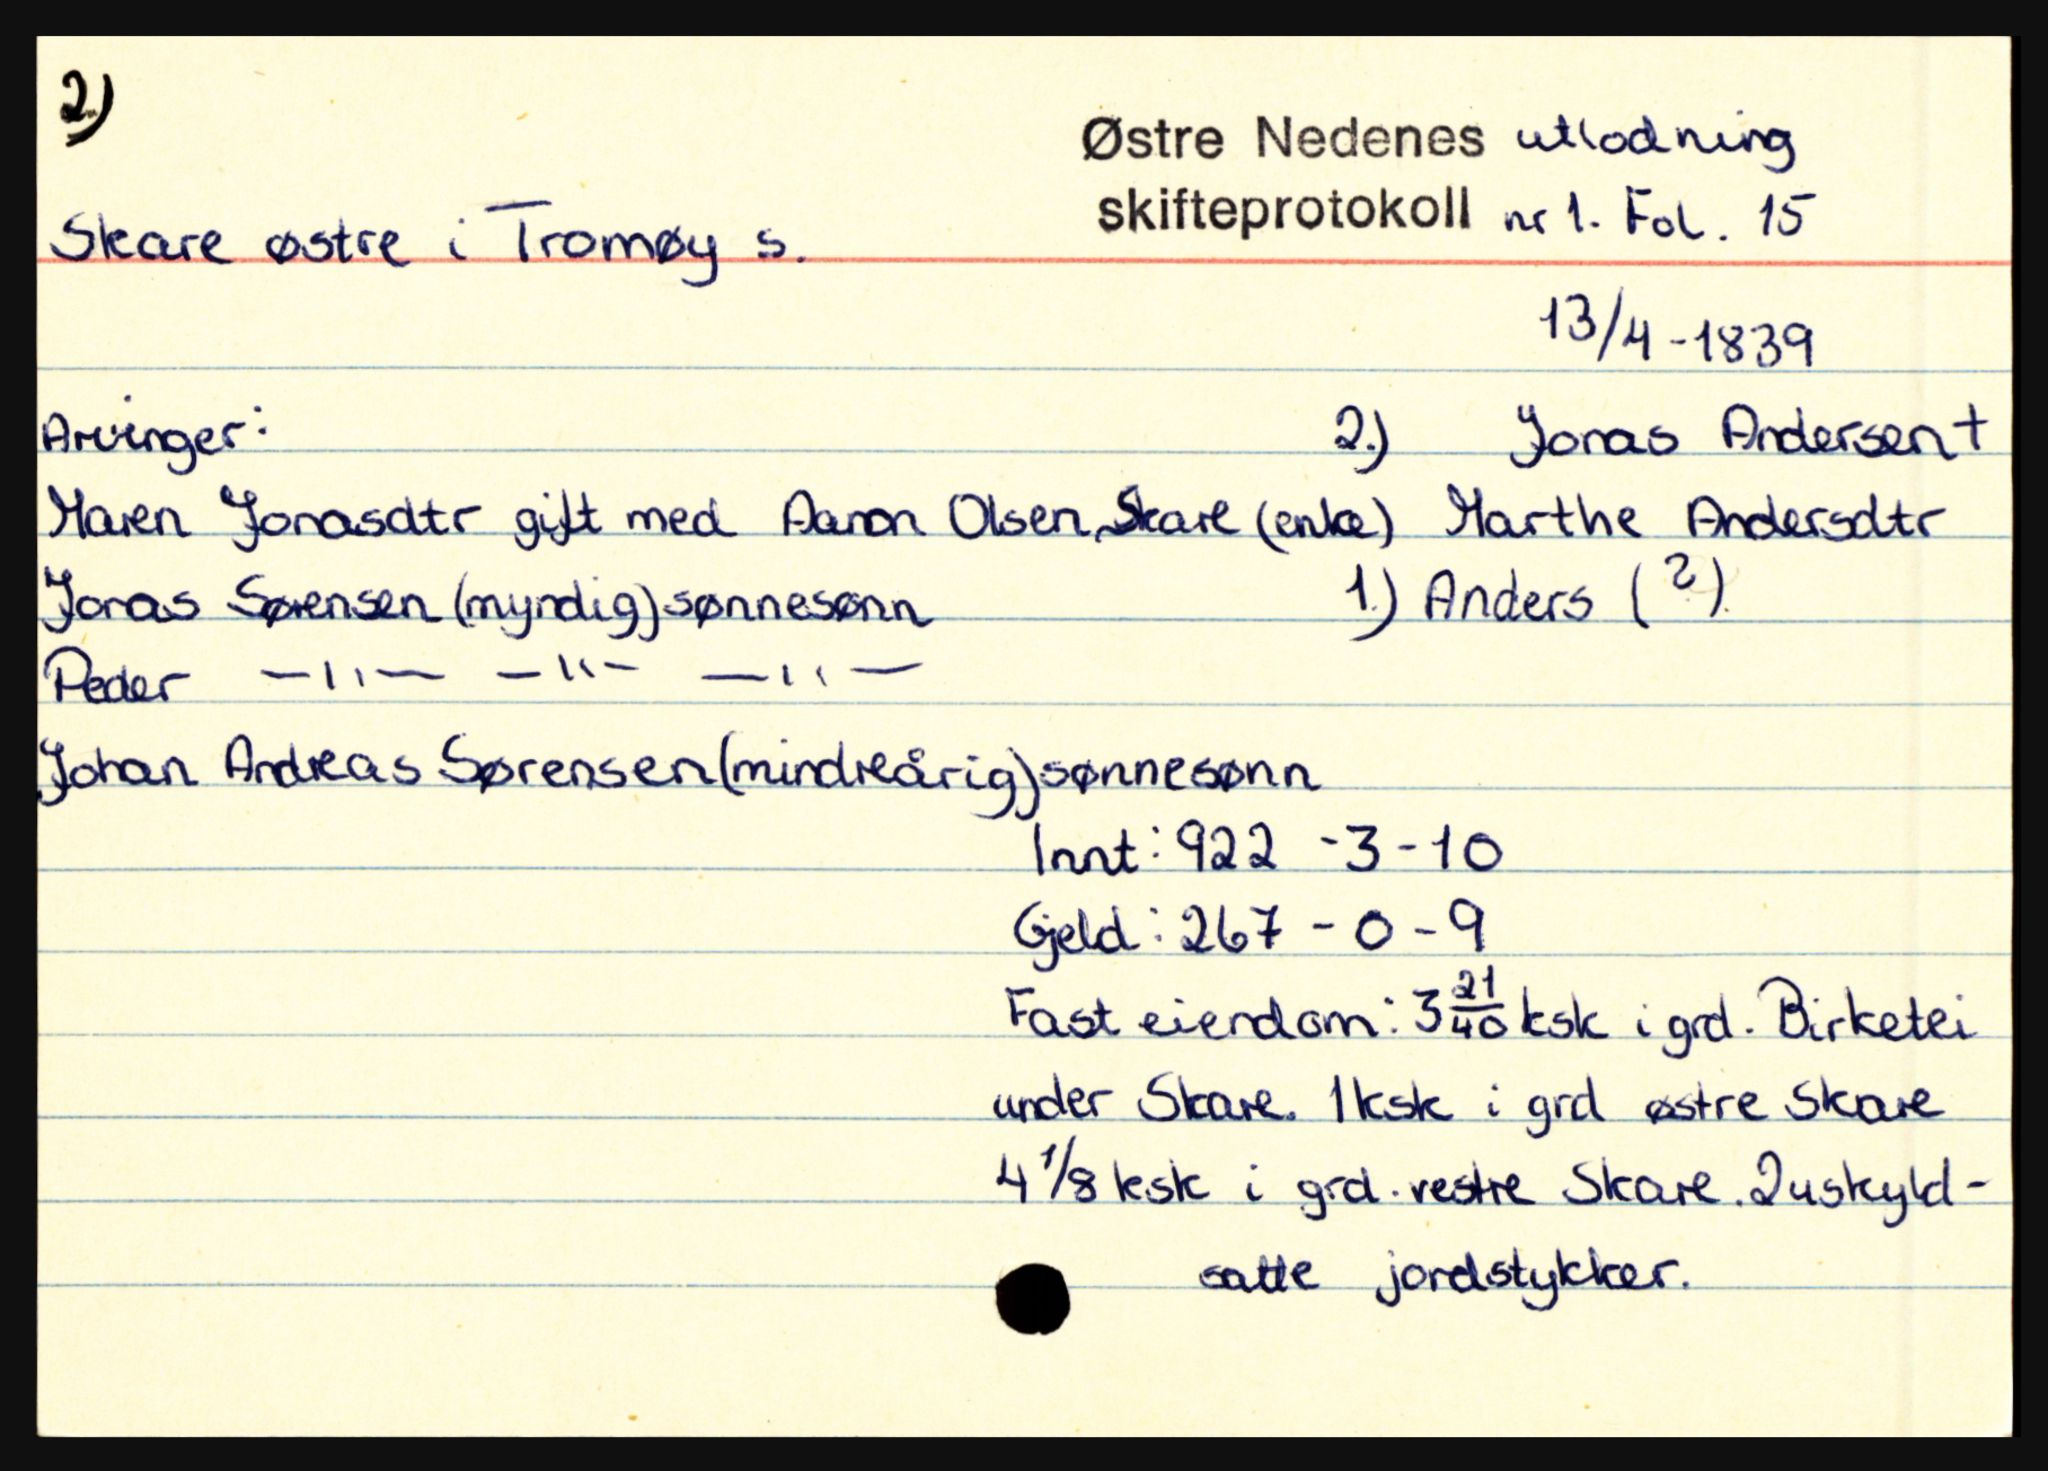 2)
Østre Nedenes utlodning
skifteprotokoll nr 1. Fol. 15
Skare østre i Tromøy s.
13/4-1839
Arvinger: 2.) Jonas Andersen +
Maren Jonasdtr gift med Aanon Olsen, Skare (enke) Marthe Andersdtr
Jonas Sørensen (myndig) sønnesønn 1.) Anders (?)
Peder —〃— —〃— —〃—
Johan Andreas Sørensen (mindreårig) sønnesønn
Innt: 922 -3-10
Gjeld: 267 - 0 - 9
Fast eiendom: 3 21/40 ksk i grd. Birketei
under Skare. 1 ksk i grd østre Skare
4 1/8 ksk i grd. vestre Skare. 2 uskyld-
satte jordstykker.